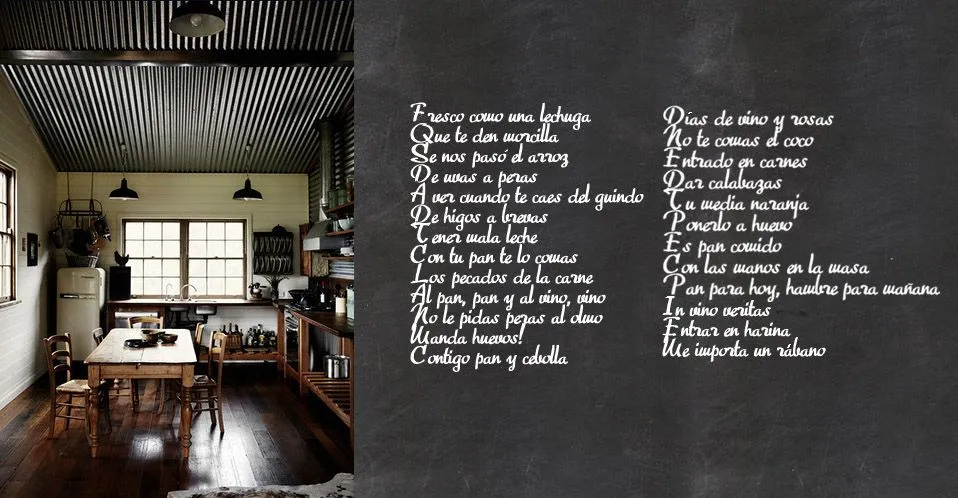 Fresco como una lechuga
Que te den morcilla
Se nos pasó el arroz
De uvas a peras
A ver cuando te caes del guindo
De higos a brevas
Tener mala leche
Con tu pan te lo comas
Los pecados de la carne
Al pan, pan y al vino, vino
No le pidas peras al olmo
Manda huevos!
Contigo pan y cebolla
Días de vino y rosas
No te comas el coco
Entrado en carnes
Dar calabazas
Tu media naranja
Ponerlo a huevo
Es pan comido
Con las manos en la masa
Pan para hoy, hambre para mañana
In vino veritas
Entrar en harina
Me importa un rábano